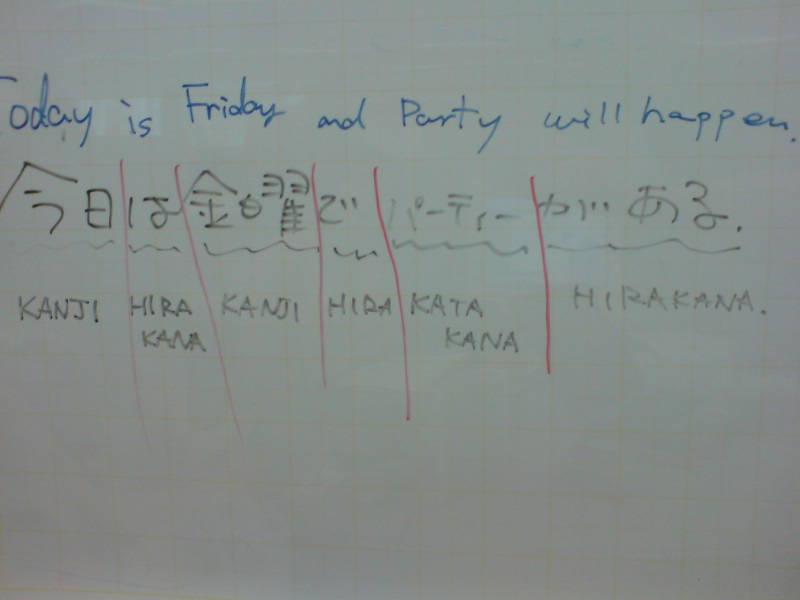 Today is Friday and Party will happen.
今日は金曜でパーティーがある.
KANJI HIRA KANJI HIRA KATA HIRAKANA.
KANA KANA